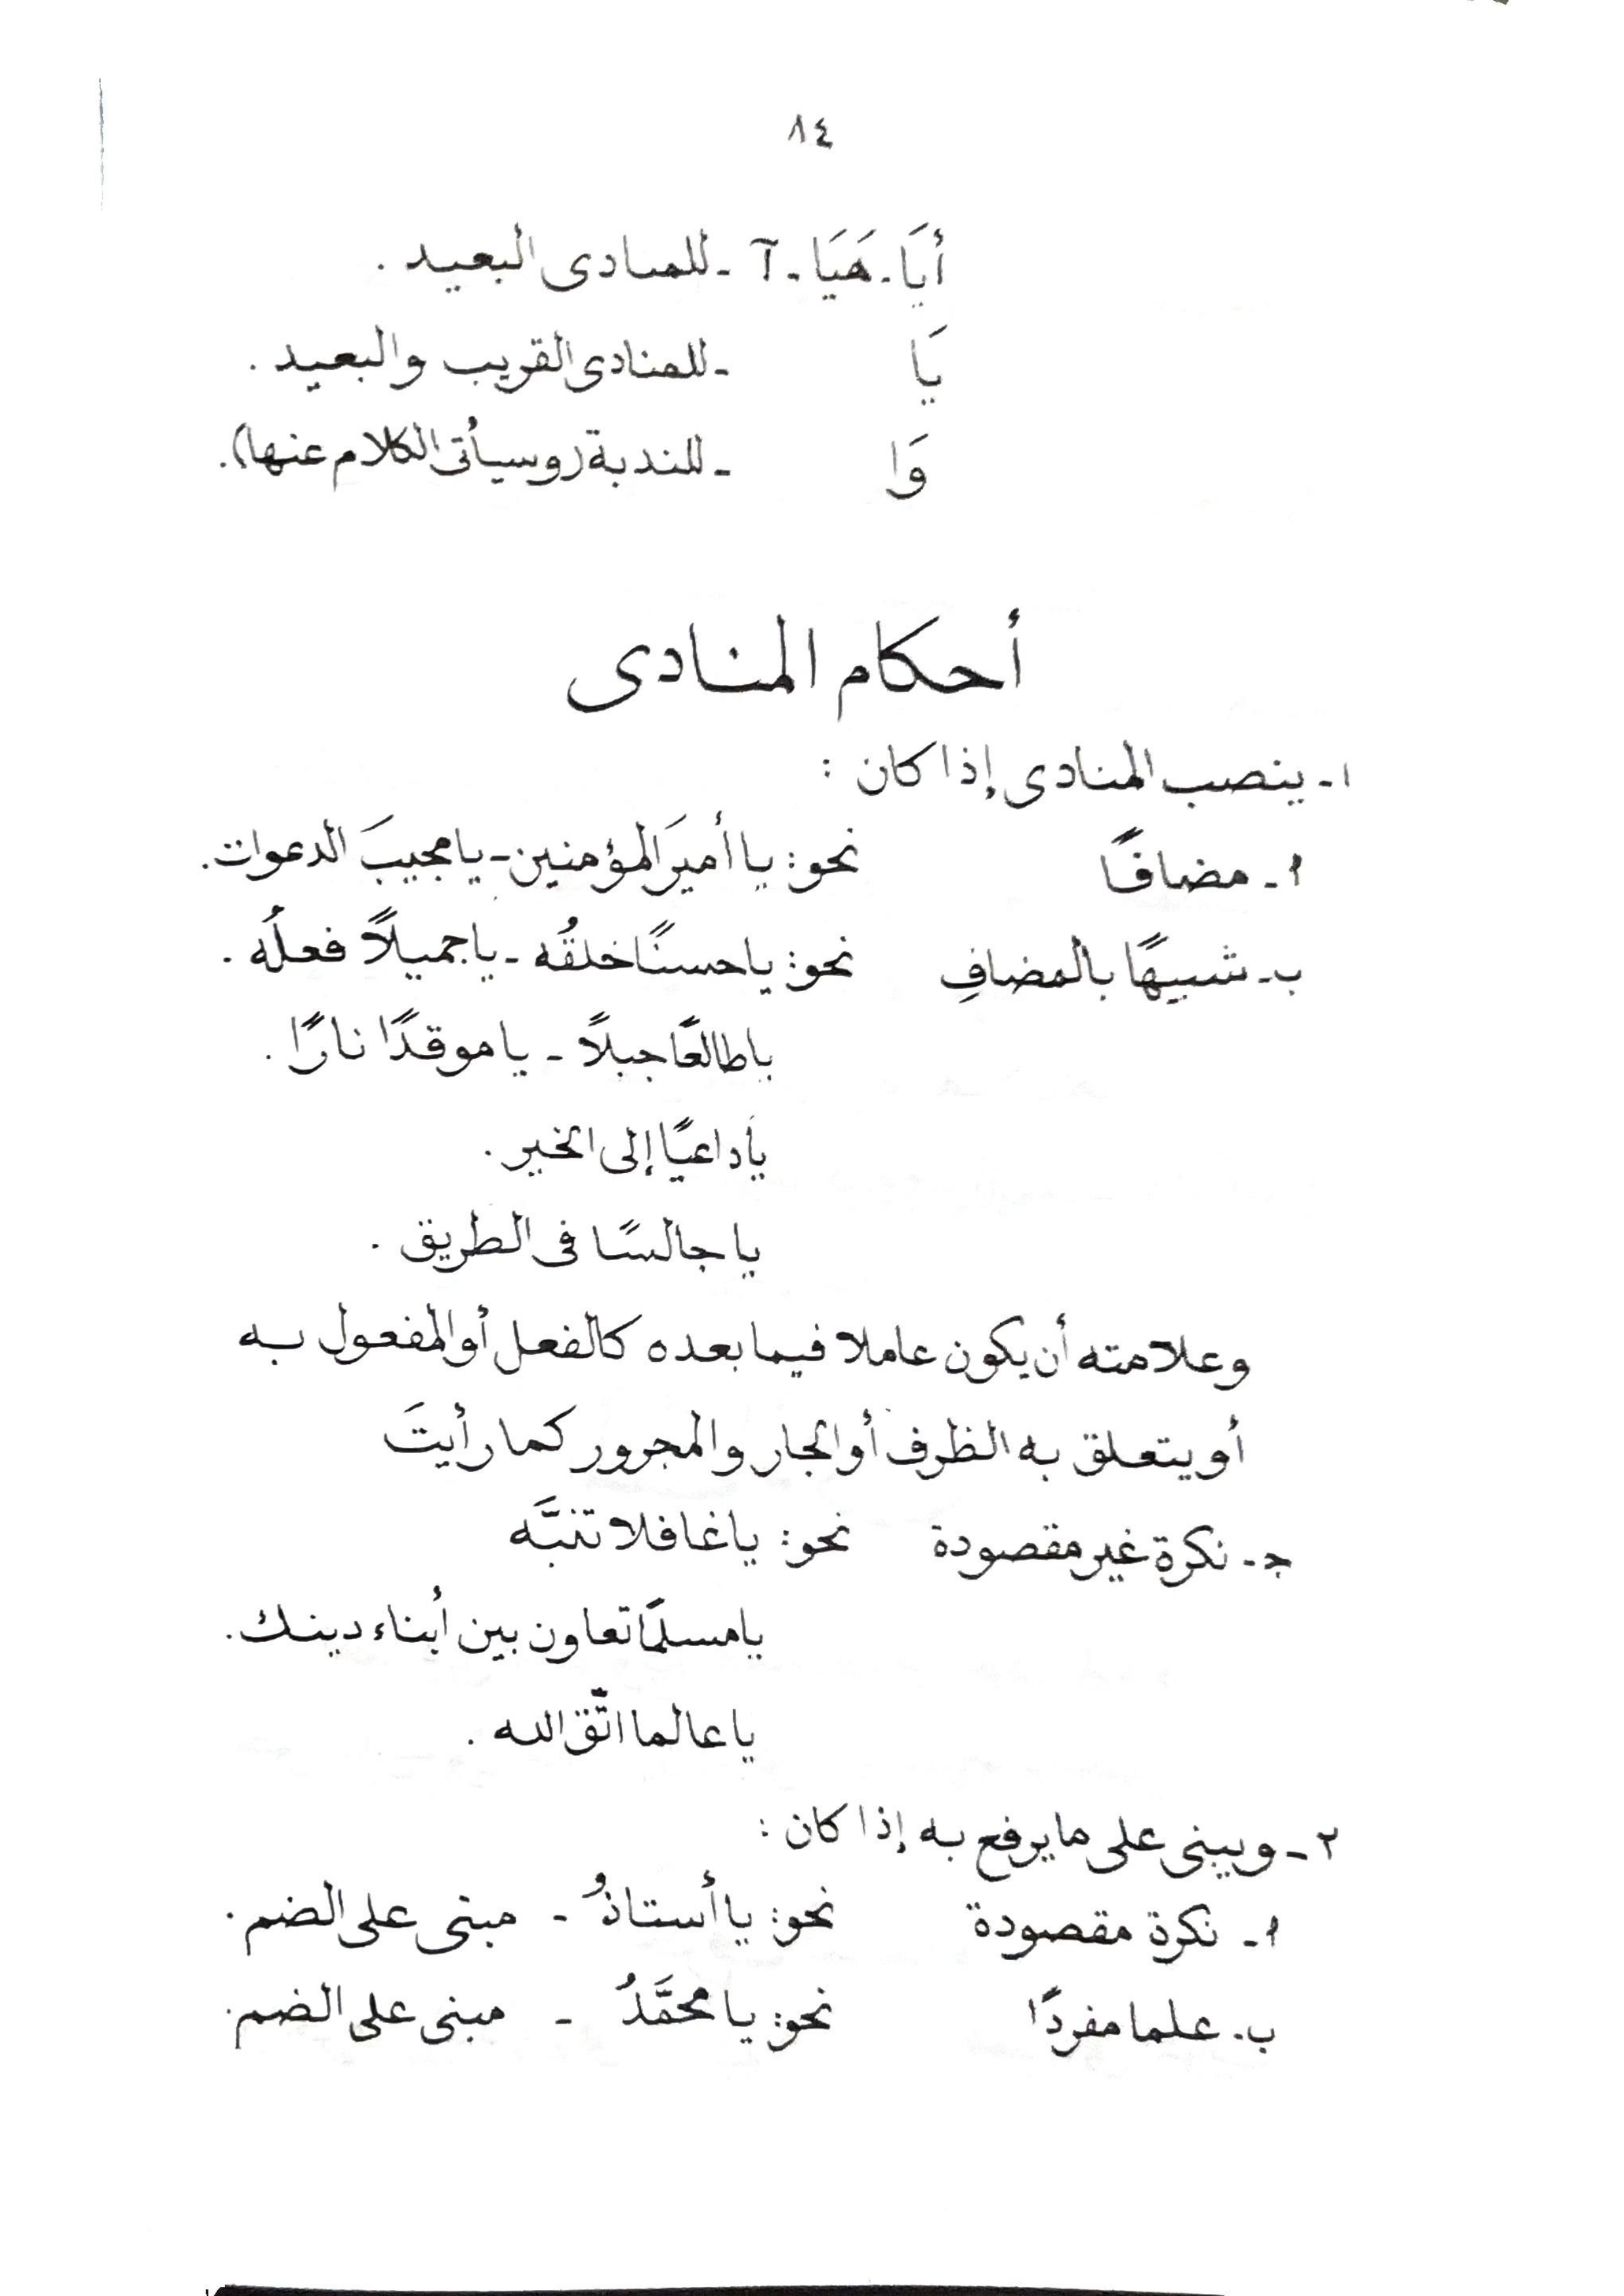 ٨٤
أَيَا - هَيَا - آ - للمنادى البعيد .
يَا - للمنادى القريب والبعيد .
وَا - للندبة (وسيأتى الكلام عنها).
أحكام المنادى
١- ينصب المنادى إذا كان :
أ- مضافًا نحو: يا أميرَ المؤمنين - يا مجيبَ الدعوات.
ب- شبيهًا بالمضافِ نحو: يا حسنًا خلقُه - يا جميلاً فعلُه .
يا طالعًا جبلاً - يا موقدًا نارًا .
يا داعيًا إلى الخير .
يا جالسًا فى الطريق .
وعلامته أن يكون عاملا فيما بعده كالفعل أو المفعول به
أو يتعلق به الظرف أو الجار والمجرور كما رأيتَ
جـ- نكرة غير مقصودة نحو: يا غافلا تنبَّه
يا مسلمًا تعاون بين أبناء دينك.
يا عالما اتَّق الله .
٢- ويبنى على ما يرفع به إذا كان :
أ- نكرة مقصودة نحو: يا أستاذُ - مبنى على الضم.
ب- علما مفردًا نحو: يا محمَّدُ - مبنى على الضم.